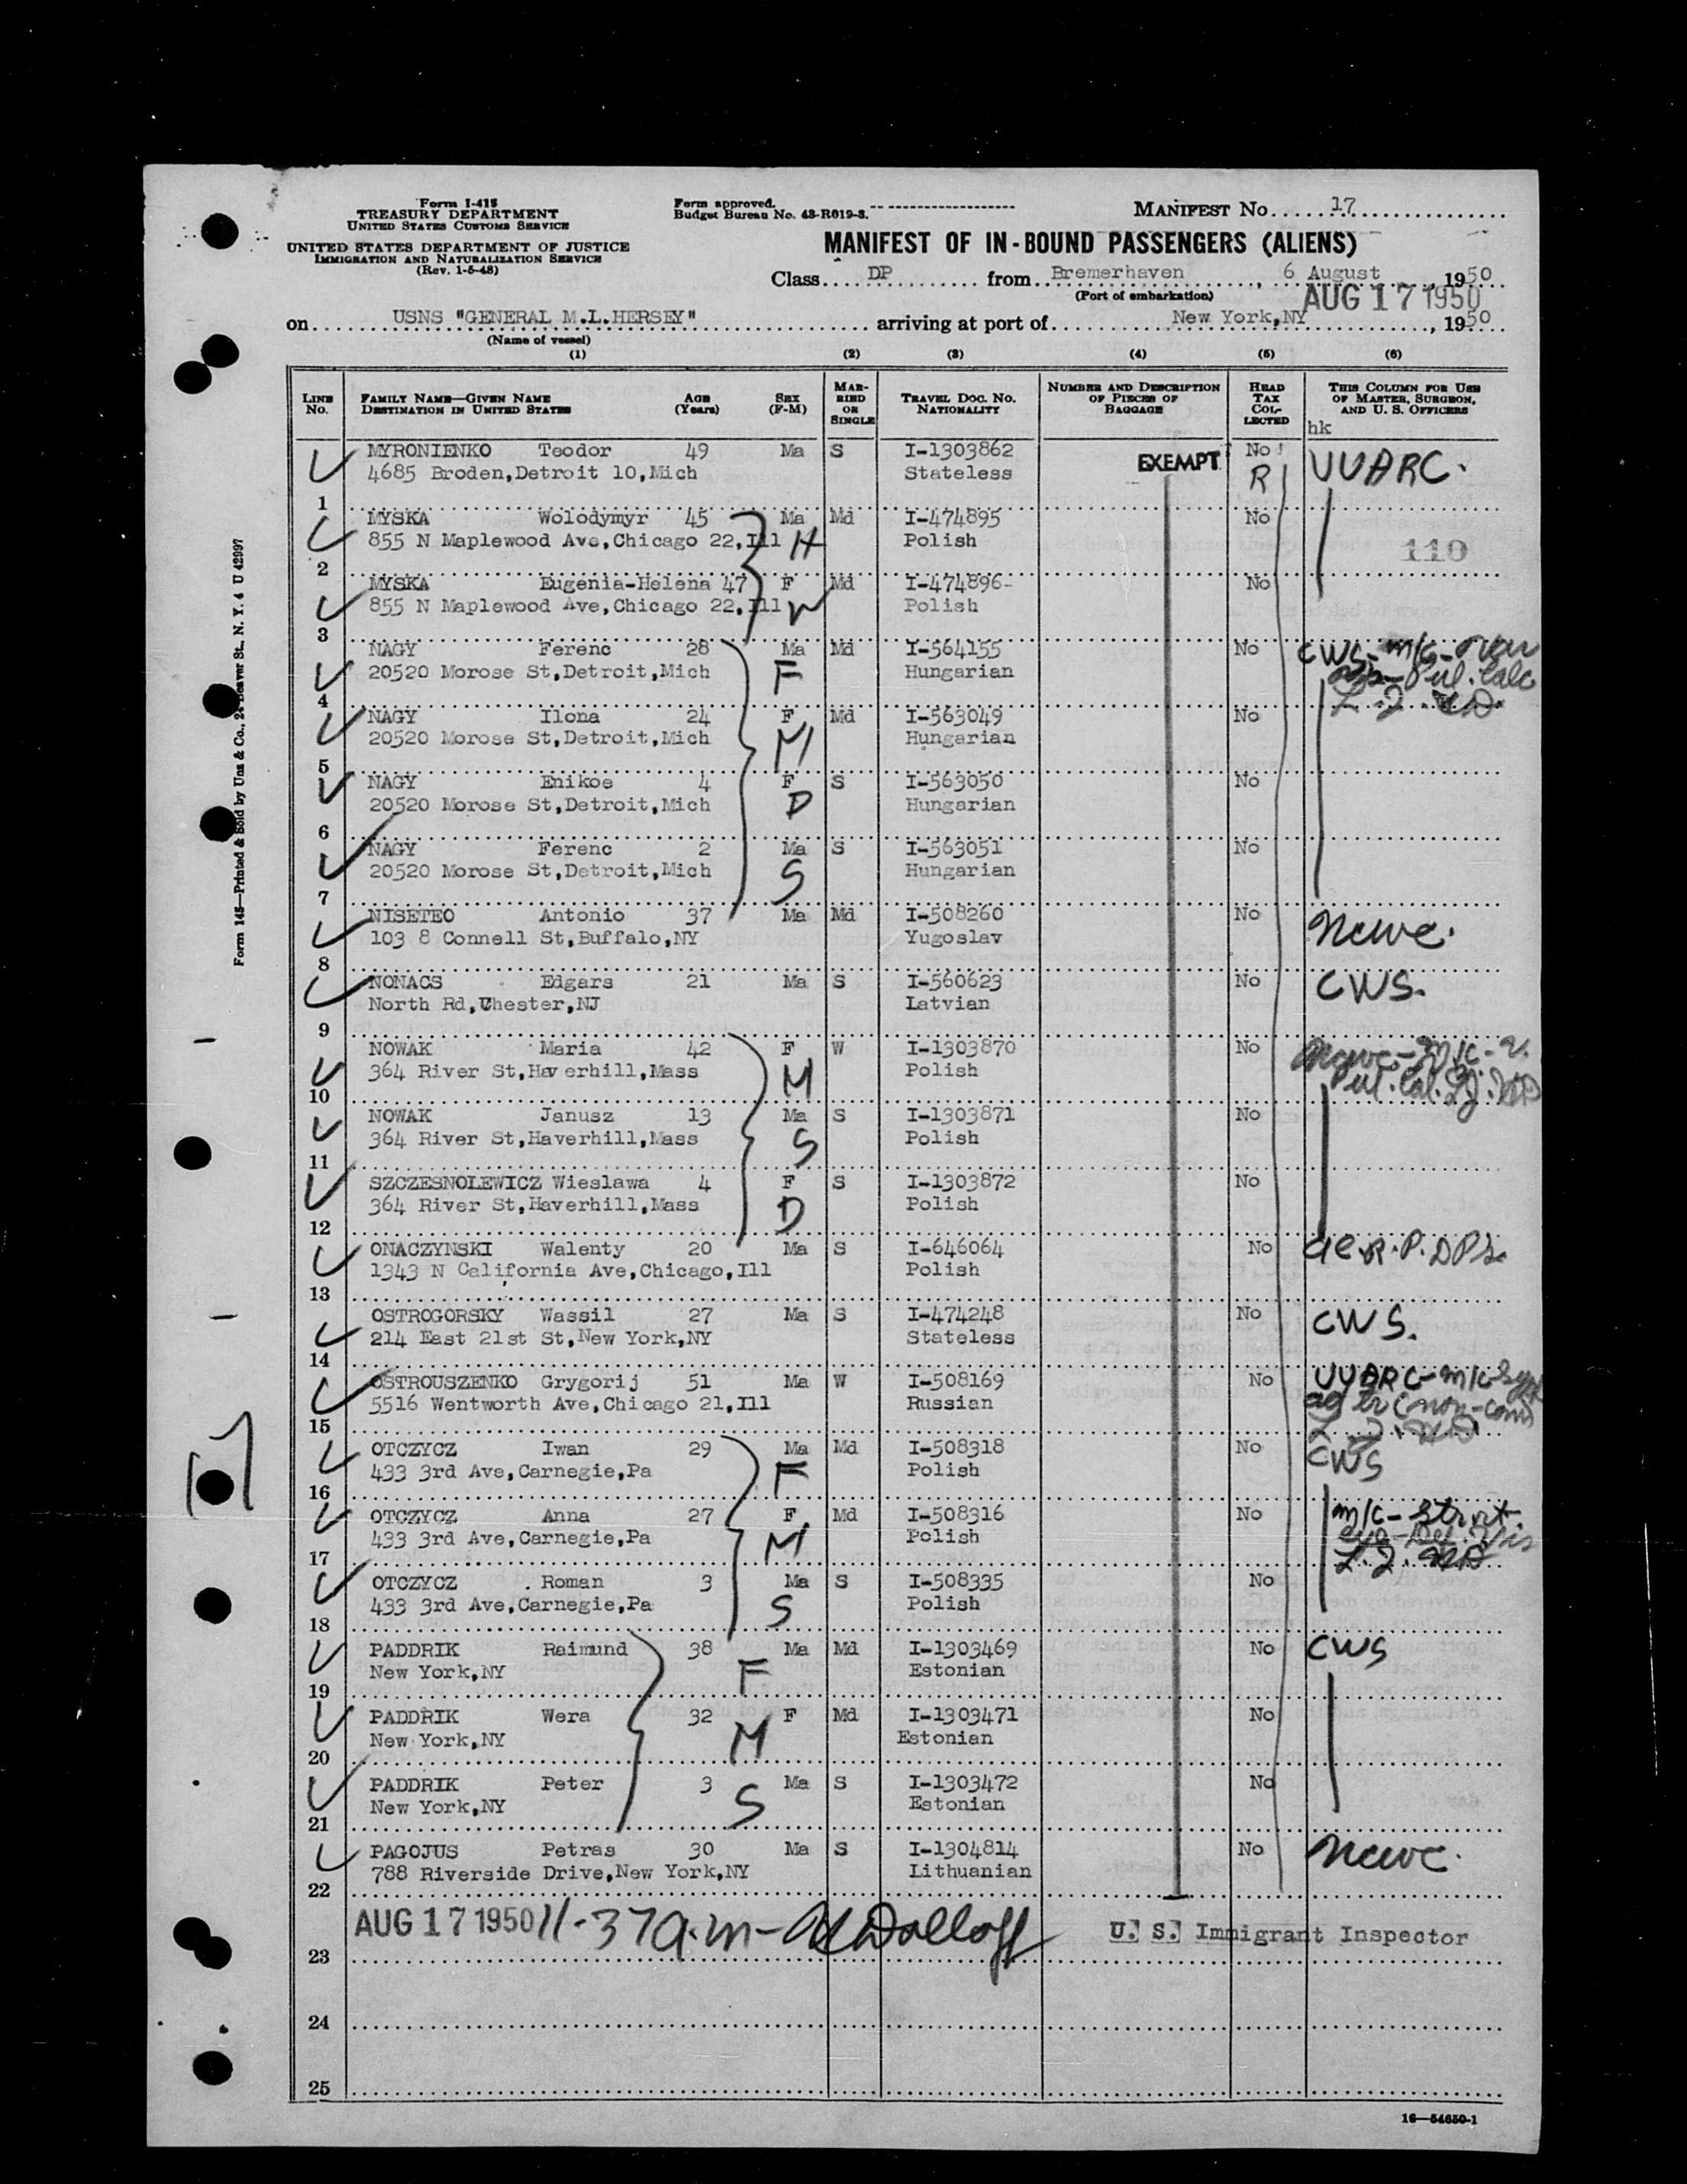 Form I-415
TREASURY DEPARTMENT
UNITED STATES CUSTOMS SERVICE
UNITED STATES DEPARTMENT OF JUSTICE
IMMIGRATION AND NATURALIZATION SERVICE
(Rev. 1-5-48)
Form approved.
Budget Bureau No. 43-R019-3.
MANIFEST No. 17
MANIFEST OF IN-BOUND PASSENGERS (ALIENS)
Class DP from Bremerhaven, 6 August, 1950
(Port of embarkation)
AUG 17 1950
on USNS "GENERAL M.L.HERSEY" arriving at port of New York,NY, 1950
(Name of vessel)
(1) (2) (3) (4) (5) (6)
LINE No. FAMILY NAME—GIVEN NAME DESTINATION IN UNITED STATES AGE (Years) SEX (F-M) MARRIED OR SINGLE TRAVEL DOC. NO. NATIONALITY NUMBER AND DESCRIPTION OF PIECES OF BAGGAGE HEAD TAX COLLECTED THIS COLUMN FOR USE OF MASTER, SURGEON, AND U. S. OFFICERS
hk
MYRONIENKO Teodor 49 Ma S I-1303862 No
4685 Broden,Detroit 10,Mich Stateless EXEMPT R UUARC.
1
MYSKA Wolodymyr 45 Ma Md I-474895 No
855 N Maplewood Ave,Chicago 22,Ill H Polish 110
2
MYSKA Eugenia-Helena 47 F Md I-474896- No
855 N Maplewood Ave,Chicago 22,Ill W Polish
3
NAGY Ferenc 28 Ma Md I-564155 No CWS-m/c-
20520 Morose St,Detroit,Mich F Hungarian Pul. Calc
4
NAGY Ilona 24 F Md I-563049 No
20520 Morose St,Detroit,Mich M Hungarian
5
NAGY Enikoe 4 F S I-563050 No
20520 Morose St,Detroit,Mich D Hungarian
6
NAGY Ferenc 2 Ma S I-563051 No
20520 Morose St,Detroit,Mich S Hungarian
7
NISETEO Antonio 37 Ma Md I-508260 No
103 8 Connell St,Buffalo,NY Yugoslav ncwc.
8
NONACS Edgars 21 Ma S I-560623 No CWS.
North Rd,Chester,NJ Latvian
9
NOWAK Maria 42 F W I-1303870 No ncwc-m/c-
364 River St,Haverhill,Mass M Polish Pul. Cal.
10
NOWAK Janusz 13 Ma S I-1303871 No
364 River St,Haverhill,Mass S Polish
11
SZCZESNOLEWICZ Wieslawa 4 F S I-1303872 No
364 River St,Haverhill,Mass D Polish
12
ONACZYNSKI Walenty 20 Ma S I-646064 No
1343 N California Ave,Chicago,Ill Polish
13
OSTROGORSKY Wassil 27 Ma S I-474248 No CWS.
214 East 21st St,New York,NY Stateless
14
OSTROUSZENKO Grygorij 51 Ma W I-508169 No UUARC-m/c-
5516 Wentworth Ave,Chicago 21,Ill Russian
15
OTCZYCZ Iwan 29 Ma Md I-508318 No CWS
433 3rd Ave,Carnegie,Pa F Polish
16
OTCZYCZ Anna 27 F Md I-508316 No m/c-
433 3rd Ave,Carnegie,Pa M Polish
17
OTCZYCZ Roman 3 Ma S I-508335 No
433 3rd Ave,Carnegie,Pa S Polish
18
PADDRIK Raimund 38 Ma Md I-1303469 No CWS
New York,NY F Estonian
19
PADDRIK Wera 32 F Md I-1303471 No
New York,NY M Estonian
20
PADDRIK Peter 3 Ma S I-1303472 No
New York,NY S Estonian
21
PAGOJUS Petras 30 Ma S I-1304814 No ncwc.
788 Riverside Drive,New York,NY Lithuanian
22
AUG 17 1950 11-37a.m- U. S. Immigrant Inspector
23
24
25
16—54650-1